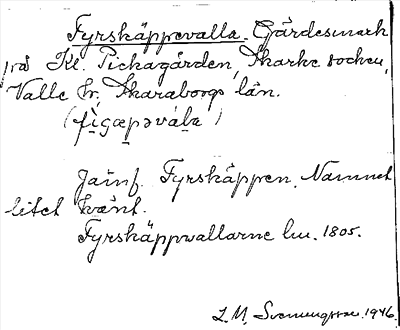 Fyrskäppevalla. Gärdesmark
på Kl. Pickagården, Skarke socken,
Valle hr, Skaraborgs län.
(fìgæpəvála)
Jämf. Fyrskäppen. Namnet
litet känt.
Fyrskäppwallarne lm. 1805.
L. M. Svenungsson 1946.